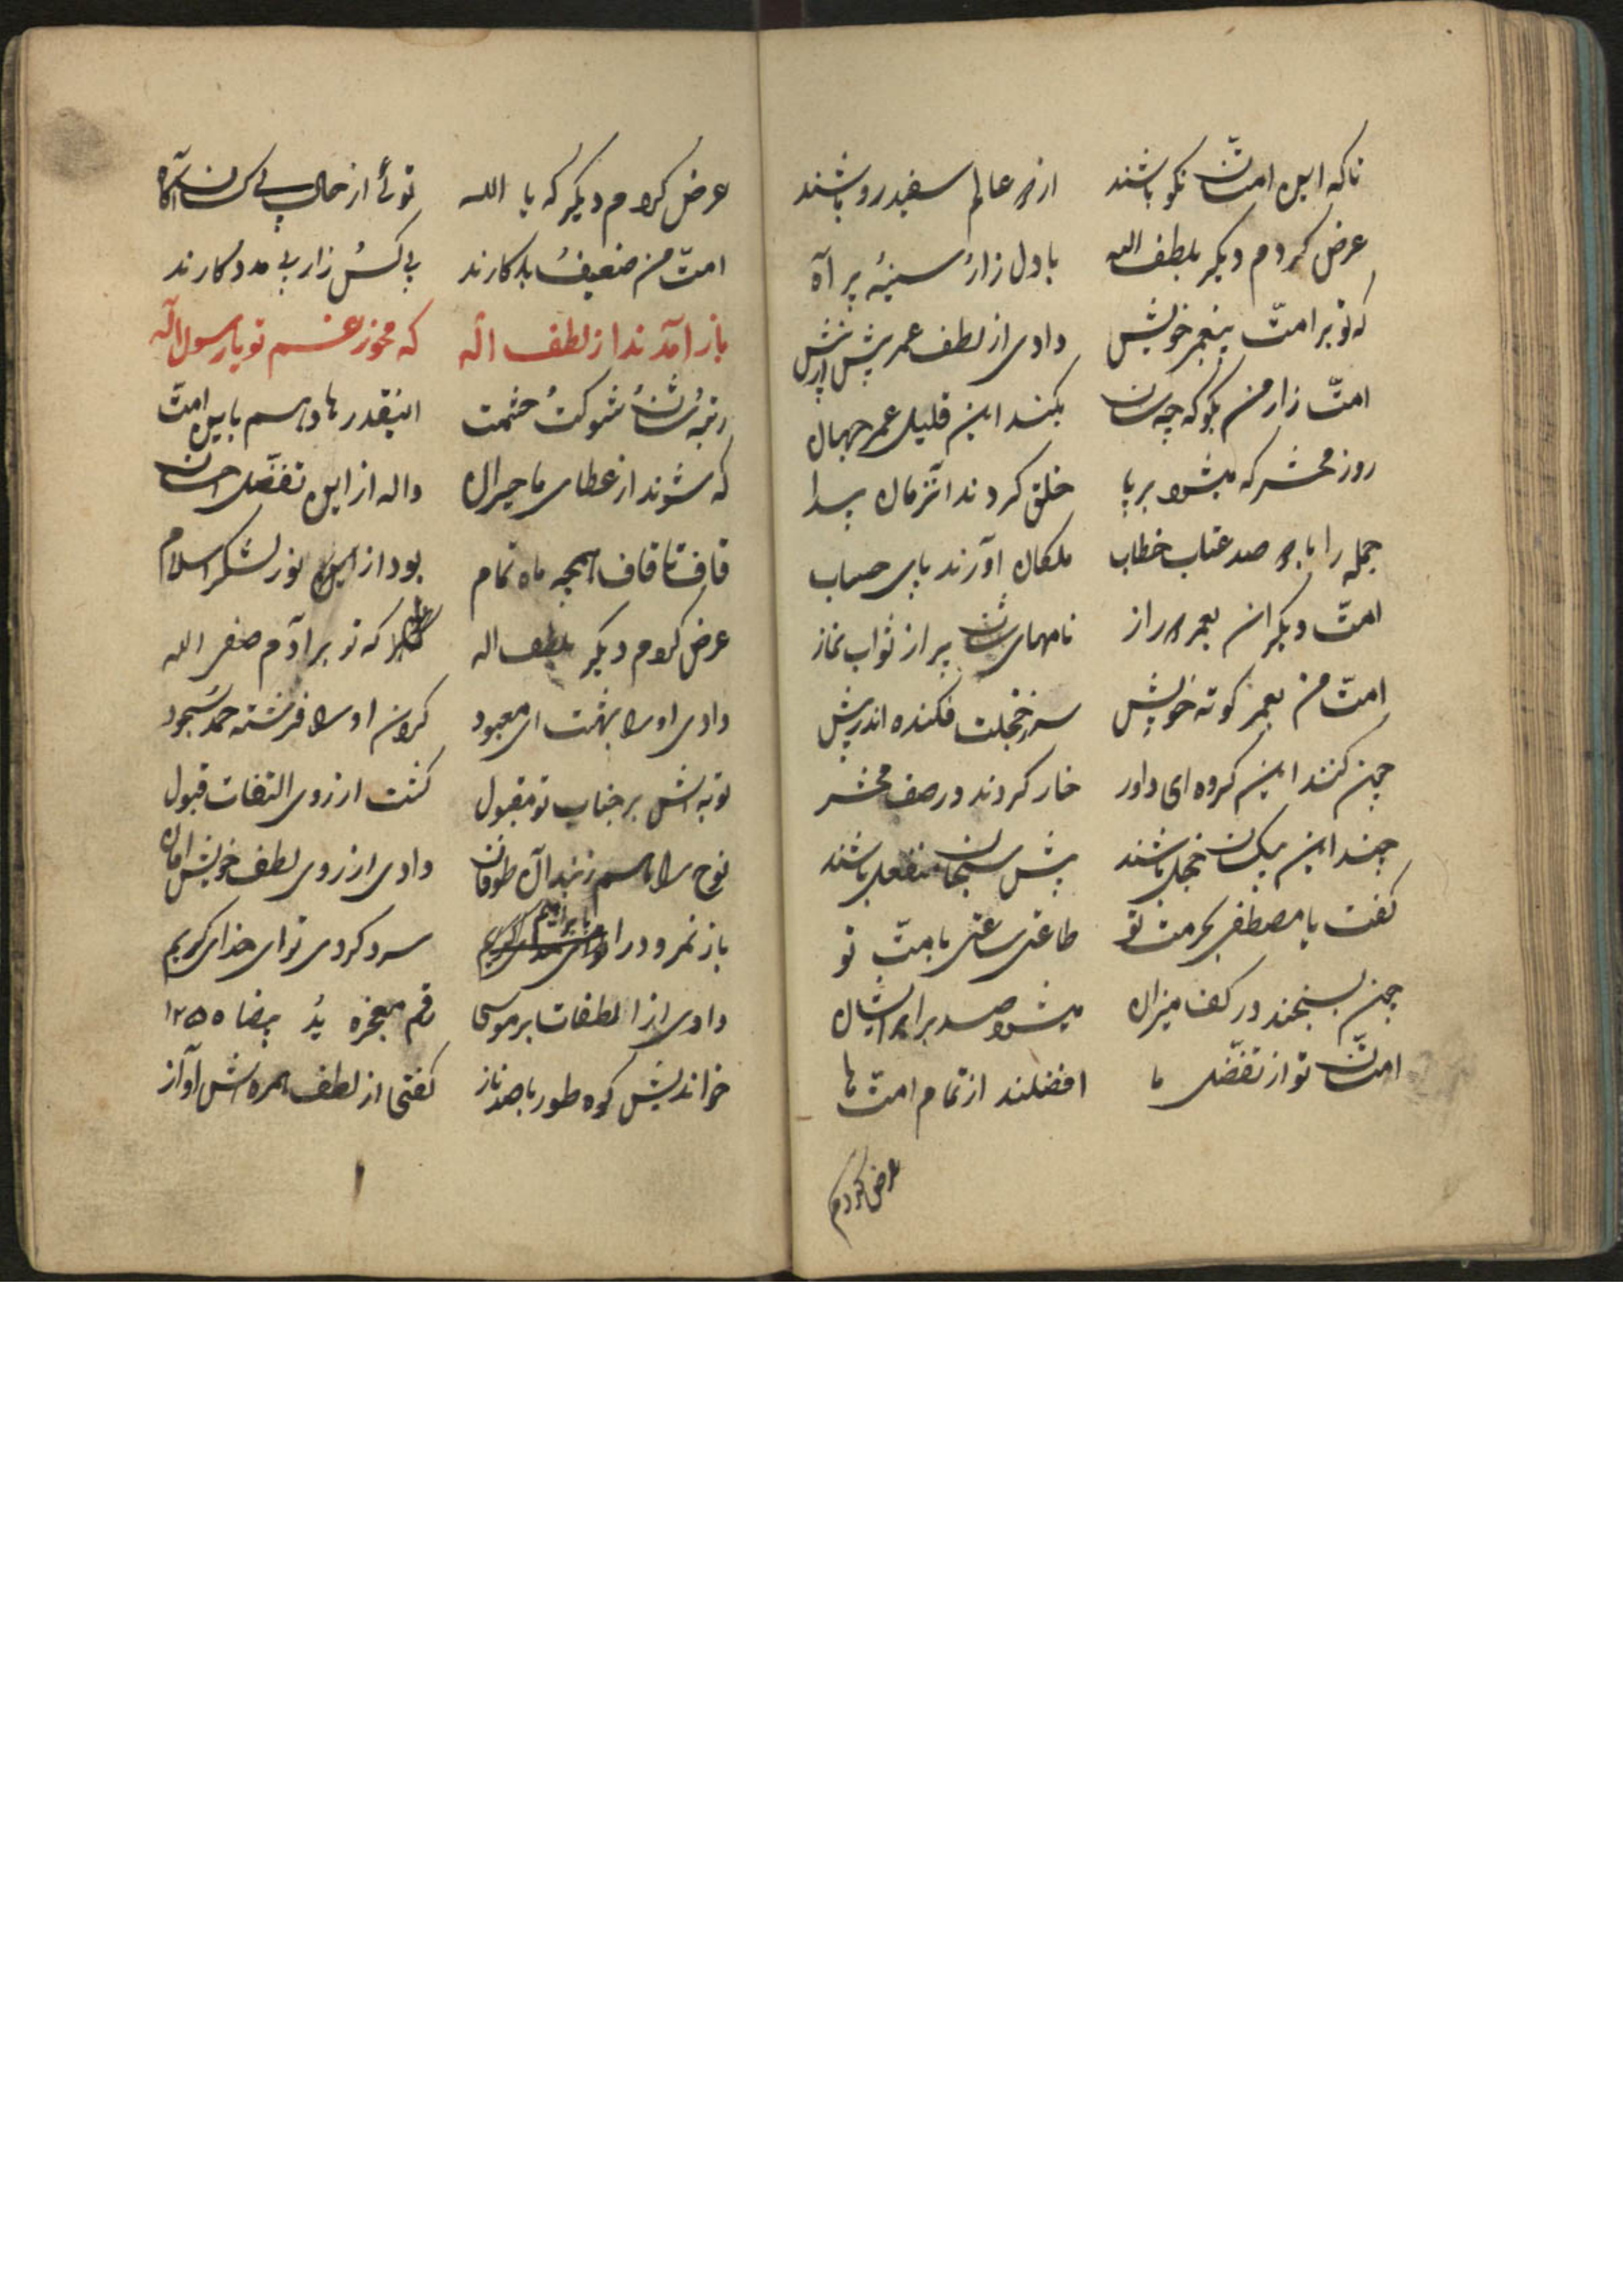 تا که این امتان نکو باشند از هر عالم سفید رو باشند
عرض کردم دیگر بلطف اله با دل زار سینهٔ پر آه
که تو بر امت پیغمبر خویش دادی از لطف عمر پیش از پیش
امت زار من بگو که چه سان بکنند این قلیل عمر جهان
روز محشر که میشود بر پا خلق کردند آنزمان پیدا
جمله را با صد عتاب خطاب ملکان آورند پای حساب
امت دیگران بعمر دراز نامهای شان پر از ثواب نماز
امت من بعمر کوته خویش سر خجلت فکنده اندر پیش
چین کنند این گروه ای داور خار کردند در صف محشر
چند این بیکسان خجل باشند پیش سبحان منفعل باشند
گفت یا مصطفی بحرمت تو طاعتی ساعتی بامت تو
چین بسنجند در کف میزان میشود صد برابر ایشان
امتان تو از تفضل ما افضلند از تمام امت ها
عرض کردم
عرض کردم دیگر که یا الله توئے از حال بی کسان آگاه
امت من ضعیف بدکارند بی کس زار بی مددکارند
باز آمد ندا ز لطف اله که مخور غم تو یا رسول اله
رتبهٔ شان شوکت حشمت اینقدرها دهم باین امت
که شوند از عطای ما حیران واله از این تفضل احسان
قاف تا قاف همچه ماه تمام بود از این نور لشکر اسلام
عرض کردم دیگر بلطف اله که تو بر آدم صفی الله
دادی او را بهشت ای معبود کردن او را فرشته حمد سجود
توبه اش بر جناب تو مقبول گشت از روی التفات قبول
نوح را هم ز بند آن طوفان دادی از روی لطف خویش امان
باز نمرود را بابراهیم سرد کردی تو ای خدای کریم
دادی از الطفات بر موسی رقم معجزه ید بیضا ۱۲۵۵
خواندیش کوه طور با صد ناز گفتی از لطف همره اش آواز